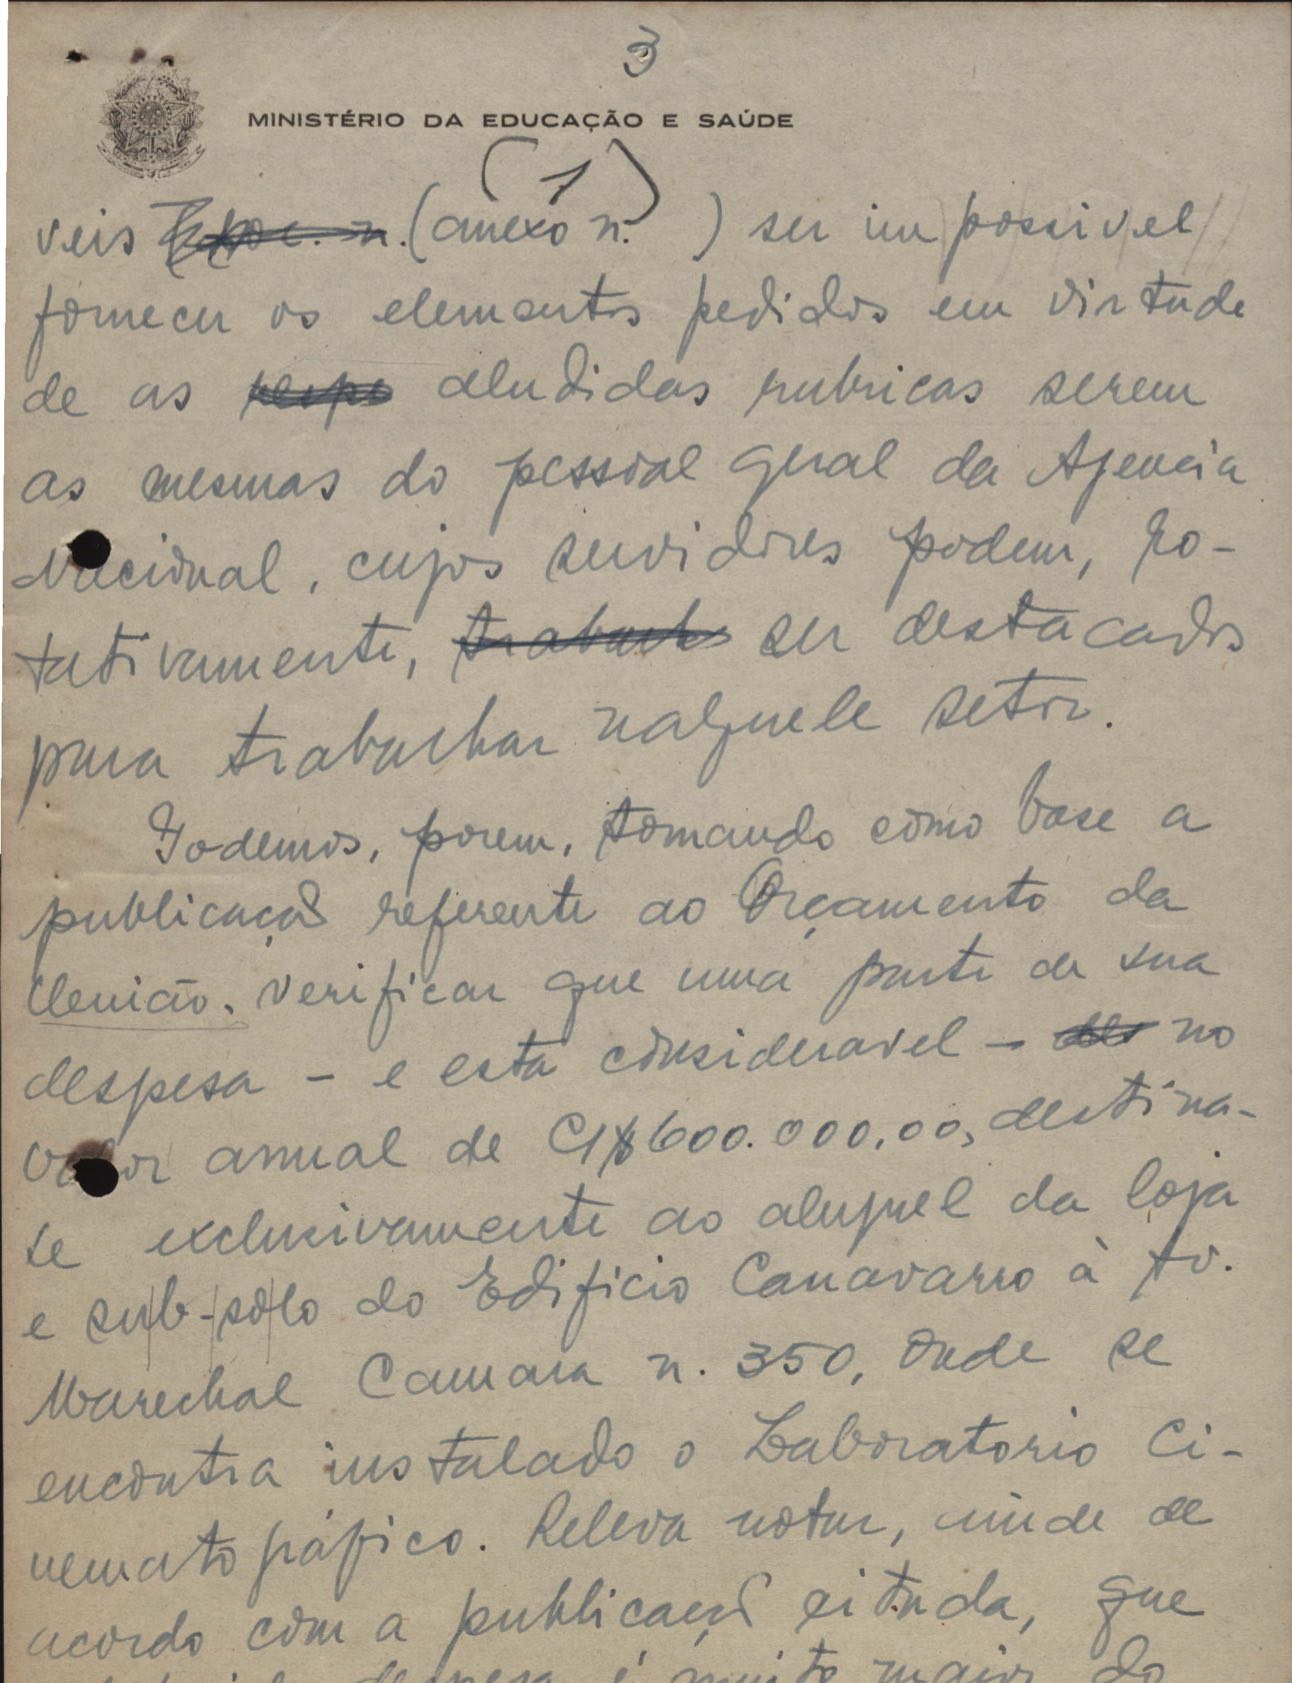 3
MINISTÉRIO DA EDUCAÇÃO E SAÚDE
(1)
veis (anexo n. ) ser impossivel
fornecer os elementos pedidos em virtude
de as aludidas rubricas serem
as mesmas do pessoal geral da Agencia
Nacional, cujos servidores podem, ro-
tativamente, ser destacados
para trabalhar naquele setor.
Podemos, porem, tomando como base a
publicação referente ao Orçamento da
União, verificar que uma parte de sua
despesa – e esta consideravel – no
valor anual de Cr$ 600.000,00, destina-
se exclusivamente ao aluguel da loja
e sub-solo do Edificio Canavarro à Av.
Marechal Camara n. 350, onde se
encontra instalado o Laboratorio Ci-
nematográfico. Releva notar, ainda de
acordo com a publicação citada, que
despesa é muito maior do